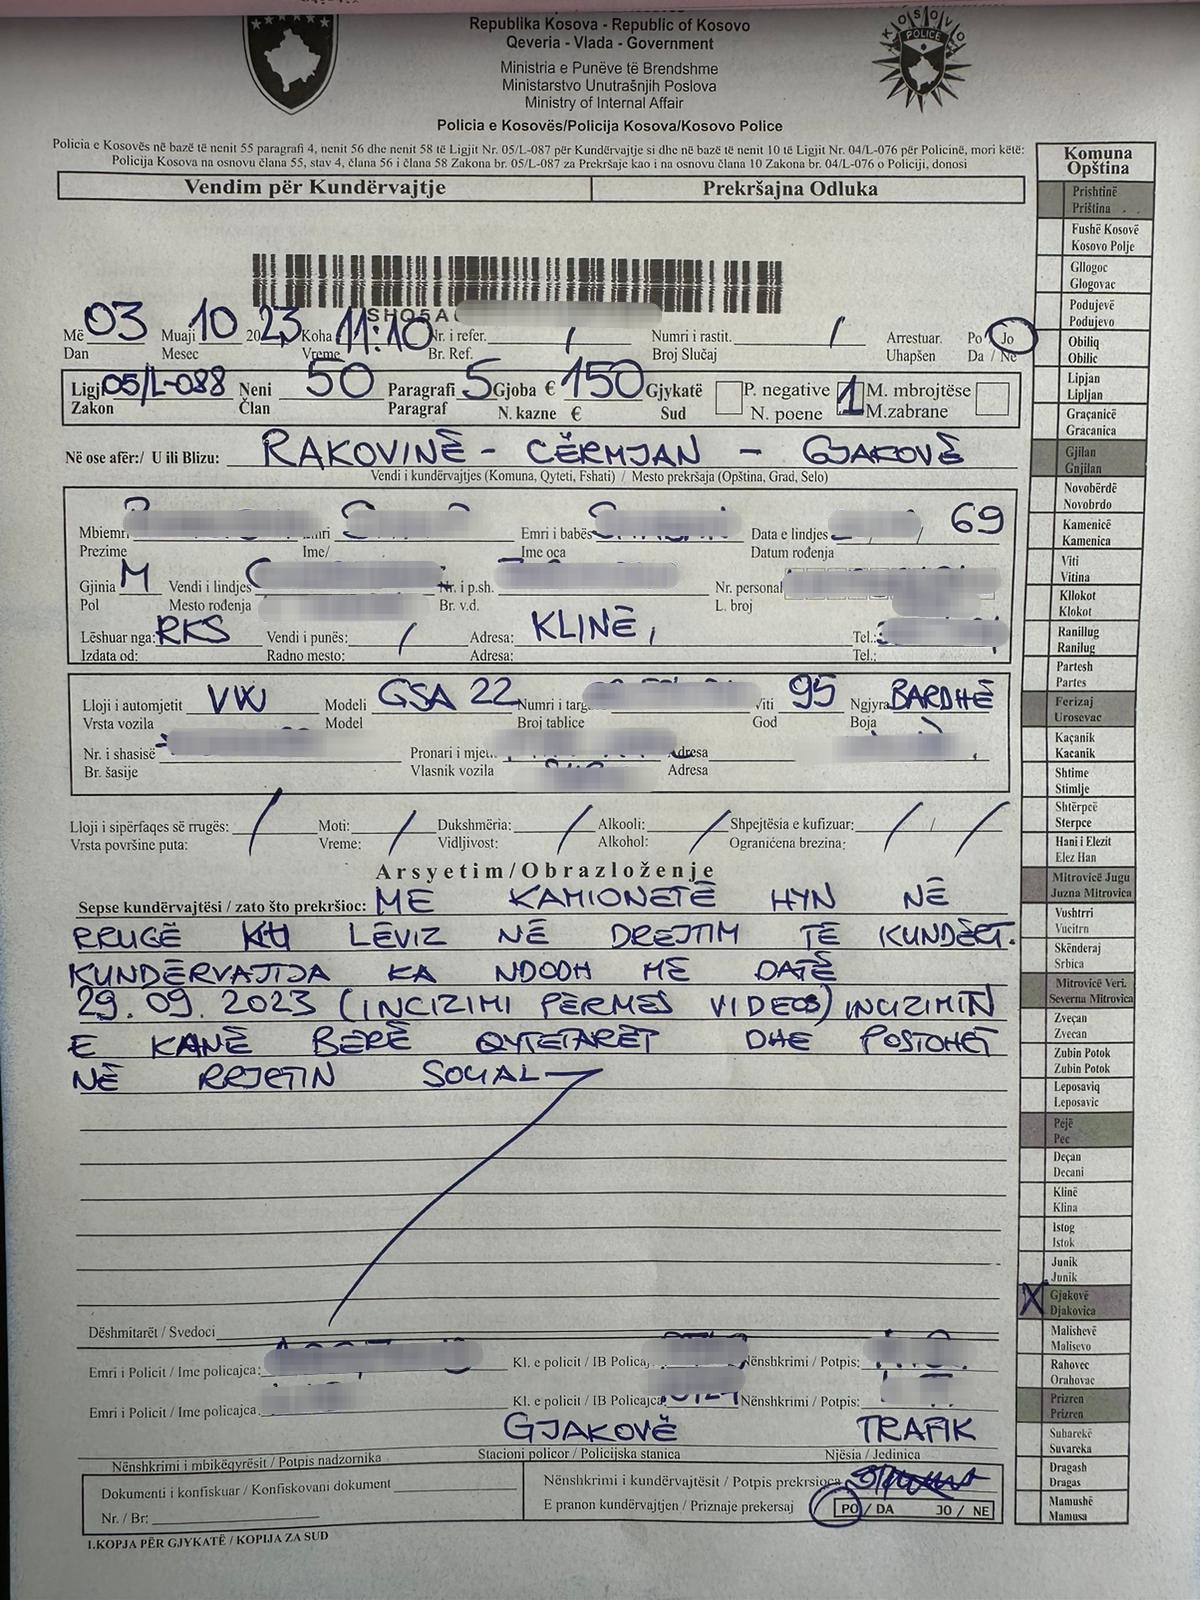 Republika Kosova - Republic of Kosovo
Qeveria - Vlada - Government
Ministria e Punëve të Brendshme
Ministarstvo Unutrašnjih Poslova
Ministry of Internal Affair
Policia e Kosovës/Policija Kosova/Kosovo Police
KOSOVO
POLICE
Policia e Kosovës në bazë të nenit 55 paragrafi 4, nenit 56 dhe nenit 58 të Ligjit Nr. 05/L-087 për Kundërvajtje si dhe në bazë të nenit 10 të Ligjit Nr. 04/L-076 për Policinë, mori këtë:
Policija Kosova na osnovu člana 55, stav 4, člana 56 i člana 58 Zakona br. 05/L-087 za Prekršaje kao i na osnovu člana 10 Zakona br. 04/L-076 o Policiji, donosi
Vendim për Kundërvajtje Prekršajna Odluka
SHQ5A
Më 03 Muaji 10 2023 Koha 11:10 Nr. i refer. / Numri i rastit. / Arrestuar. Po Jo
Dan Mesec Vreme Br. Ref. Broj Slučaj Uhapšen Da / Ne
Ligji 05/L-088 Neni 50 Paragrafi 5 Gjoba € 150 Gjykatë P. negative 1 M. mbrojtëse
Zakon Član Paragraf N. kazne € Sud N. poene M.zabrane
Në ose afër:/ U ili Blizu: RAKOVINË - CËRMJAN - GJAKOVË
Vendi i kundërvajtjes (Komuna, Qyteti, Fshati) / Mesto prekršaja (Opština, Grad, Selo)
Mbiemri Emri Emri i babës Data e lindjes / / 69
Prezime Ime/ Ime oca Datum rođenja
Gjinia M Vendi i lindjes Nr. i p.sh. Nr. personal
Pol Mesto rođenja Br. v.d. L. broj
Lëshuar nga: RKS Vendi i punës: / Adresa: KLINË, Tel.:
Izdata od: Radno mesto: Adresa: Tel.:
Lloji i automjetit VW Modeli GSA 22 Numri i targ Viti 95 Ngjyra BARDHË
Vrsta vozila Model Broj tablice God Boja
Nr. i shasisë Pronari i mjet. Adresa
Br. šasije Vlasnik vozila Adresa
Lloji i sipërfaqes së rrugës: / Moti: / Dukshmëria: / Alkooli: / Shpejtësia e kufizuar: / / /
Vrsta površine puta: Vreme: Vidljivost: Alkohol: Ograničena brezina:
Arsyetim/Obrazloženje
Sepse kundërvajtësi / zato što prekršioc: ME KAMIONETË HYN NË
RRUGË LËVIZ NË DREJTIM TË KUNDËRT.
KUNDËRVAJTJA KA NDODH ME DATË
29.09.2023 (INCIZIMI PËRMES VIDEOS) INCIZIMIN
E KANË BËRË QYTETARËT DHE POSTOHET
NË RRJETIN SOCIAL
Dëshmitarët / Svedoci
Emri i Policit / Ime policajca: Kl. e policit / IB Policaj Nënshkrimi / Potpis:
Emri i Policit / Ime policajca. Kl. e policit / IB Policajca Nënshkrimi / Potpis:
GJAKOVË TRAFIK
Nënshkrimi i mbikëqyrësit / Potpis nadzornika Stacioni policor / Policijska stanica Njësia / Jedinica
Dokumenti i konfiskuar / Konfiskovani dokument
Nr. / Br:
Nënshkrimi i kundërvajtësit / Potpis prekrsioca
E pranon kundërvajtjen / Priznaje prekersaj PO / DA JO / NE
1.KOPJA PËR GJYKATË / KOPIJA ZA SUD
Komuna
Opština
Prishtinë
Priština
Fushë Kosovë
Kosovo Polje
Gllogoc
Glogovac
Podujevë
Podujevo
Obiliq
Obilic
Lipjan
Lipljan
Graçanicë
Gracanica
Gjilan
Gnjilan
Novobërdë
Novobrdo
Kamenicë
Kamenica
Viti
Vitina
Kllokot
Klokot
Ranillug
Ranilug
Partesh
Partes
Ferizaj
Urosevac
Kaçanik
Kacanik
Shtime
Stimlje
Shtërpcë
Sterpce
Hani i Elezit
Elez Han
Mitrovicë Jugu
Juzna Mitrovica
Vushtrri
Vucitrn
Skënderaj
Srbica
Mitrovicë Veri.
Severna Mitrovica
Zveçan
Zvecan
Zubin Potok
Zubin Potok
Leposaviq
Leposavic
Pejë
Pec
Deçan
Decani
Klinë
Klina
Istog
Istok
Junik
Junik
X Gjakovë
Djakovica
Malishevë
Malisevo
Rahovec
Orahovac
Prizren
Prizren
Suharekë
Suvareka
Dragash
Dragas
Mamushë
Mamusa